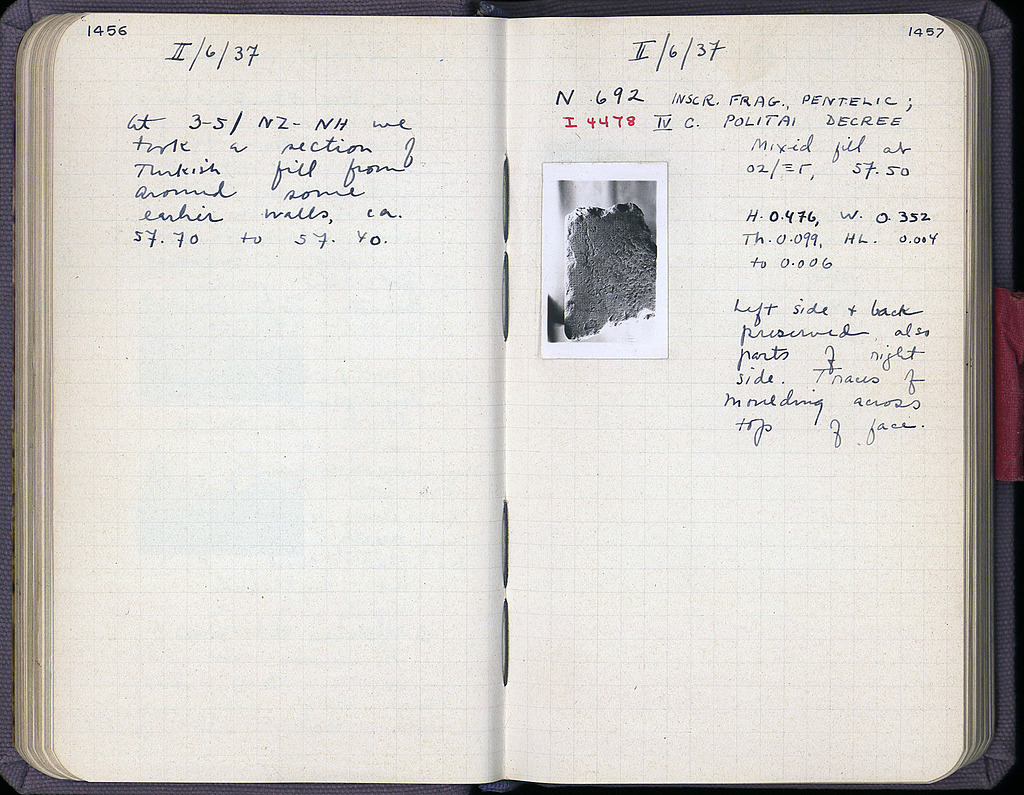 1456
II/6/37
At 3-5/ NZ-NH we
took a section of
Turkish fill from
around some
earlier walls, ca.
57.70 to 57.40.
1457
II/6/37
N 692 INSCR. FRAG., PENTELIC;
I 4478 IV C. POLITAI DECREE
Mixed fill at
02/ΞΓ, 57.50
H. 0.476, W. 0.352
Th. 0.099, HL. 0.004
to 0.006
Left side + back
preserved, also
parts of right
side. Traces of
moulding across
top of face.